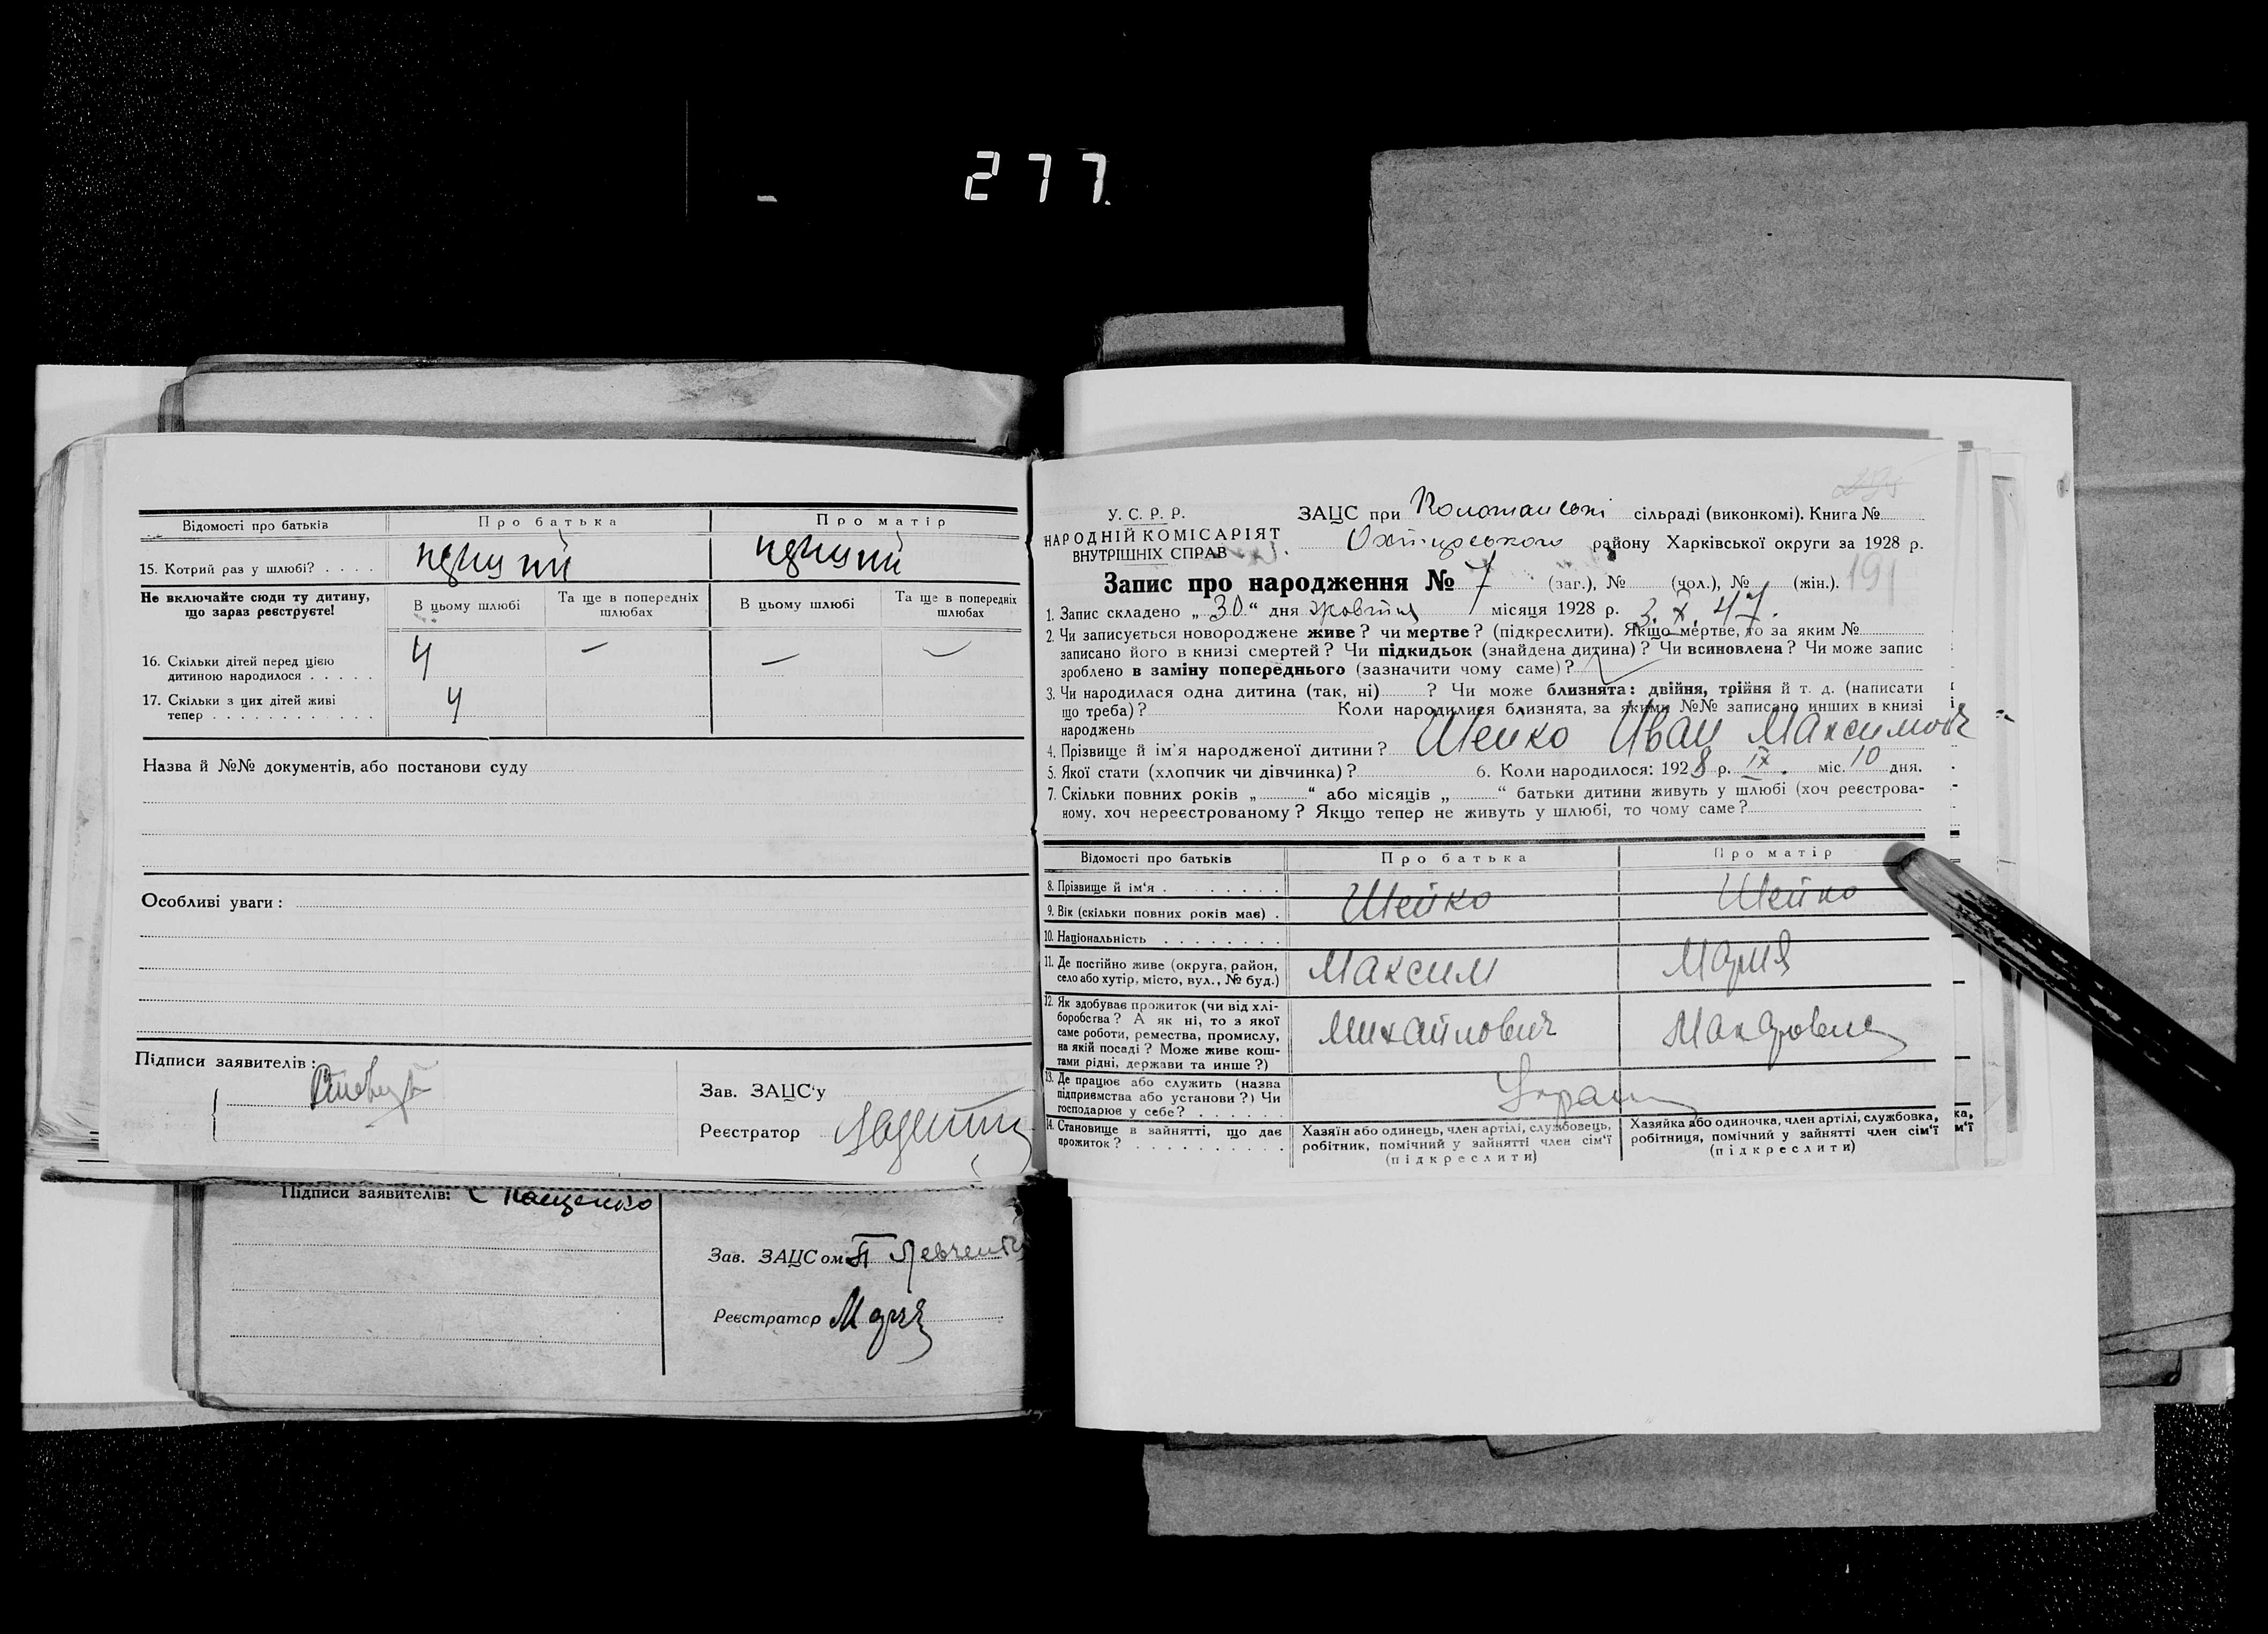 277.
Відомості про батьків Про батька Про матір
15. Котрий раз у шлюбі? . . . .
Не включайте сюди ту дитину, що зараз реєструєте!
В цьому шлюбі Та ще в попередніх шлюбах В цьому шлюбі Та ще в попередніх шлюбах
16. Скільки дітей перед цією
дитиною народилося . . . . . 4 — — —
17. Скільки з цих дітей живі
тепер . . . . . . . . . . . . 4
Назва й №№ документів, або постанови суду
Особливі уваги:
Підписи заявителів:
Зав. ЗАЦС'у
Реєстратор
Підписи заявителів: Пащенко
Зав. ЗАЦСом П Левченко
Реєстратор
У. С. Р. Р.
НАРОДНІЙ КОМІСАРІЯТ
ВНУТРІШНІХ СПРАВ
ЗАЦС при сільраді (виконкомі). Книга №
Охтирського району Харківської округи за 1928 р.
Запис про народження № 7 (заг.), № (чол.), № (жін.). 191
1. Запис складено „30“ дня жовтня місяця 1928 р. 3. X. 47.
2. Чи записується новороджене живе? чи мертве? (підкреслити). Якщо мертве, то за яким №
записано його в книзі смертей? Чи підкидьок (знайдена дитина)? Чи всиновлена? Чи може запис
зроблено в заміну попереднього (зазначити чому саме)?
3. Чи народилася одна дитина (так, ні)? Чи може близнята: двійня, трійня й т. д. (написати
що треба)? Коли народилися близнята, за якими №№ записано инших в книзі
народжень
4. Прізвище й ім'я народженої дитини? Шейко Иван Максимович
5. Якої стати (хлопчик чи дівчинка)? 6. Коли народилося: 1928 р. IX. міс. 10 дня.
7. Скільки повних років „ “ або місяців „ “ батьки дитини живуть у шлюбі (хоч реєстрова-
ному, хоч нереєстрованому? Якщо тепер не живуть у шлюбі, то чому саме?
Відомості про батьків Про батька Про матір
8. Прізвище й ім'я . . . . . . . .
Шейко Шейко
9. Вік (скільки повних років має) .
10. Національність . . . . . . . .
11. Де постійно живе (округа, район,
село або хутір, місто, вул., № буд.)
Максим Мария
12. Як здобуває прожиток (чи від хлі-
боробства? А як ні, то з якої
саме роботи, ремества, промислу,
на якій посаді? Може живе кош-
тами рідні, держави та инше?)
Михайлович Макаровна
13. Де працює або служить (назва
підприємства або установи?) Чи
господарює у себе? . . . . . .
14. Становище в зайнятті, що дає
прожиток? . . . . . . . . . .
Хазяїн або одинець, член артілі, службовець,
робітник, помічний у зайнятті член сім'ї
(підкреслити)
Хазяйка або одиночка, член артілі, службовка,
робітниця, помічний у зайнятті член сім'ї
(підкреслити)